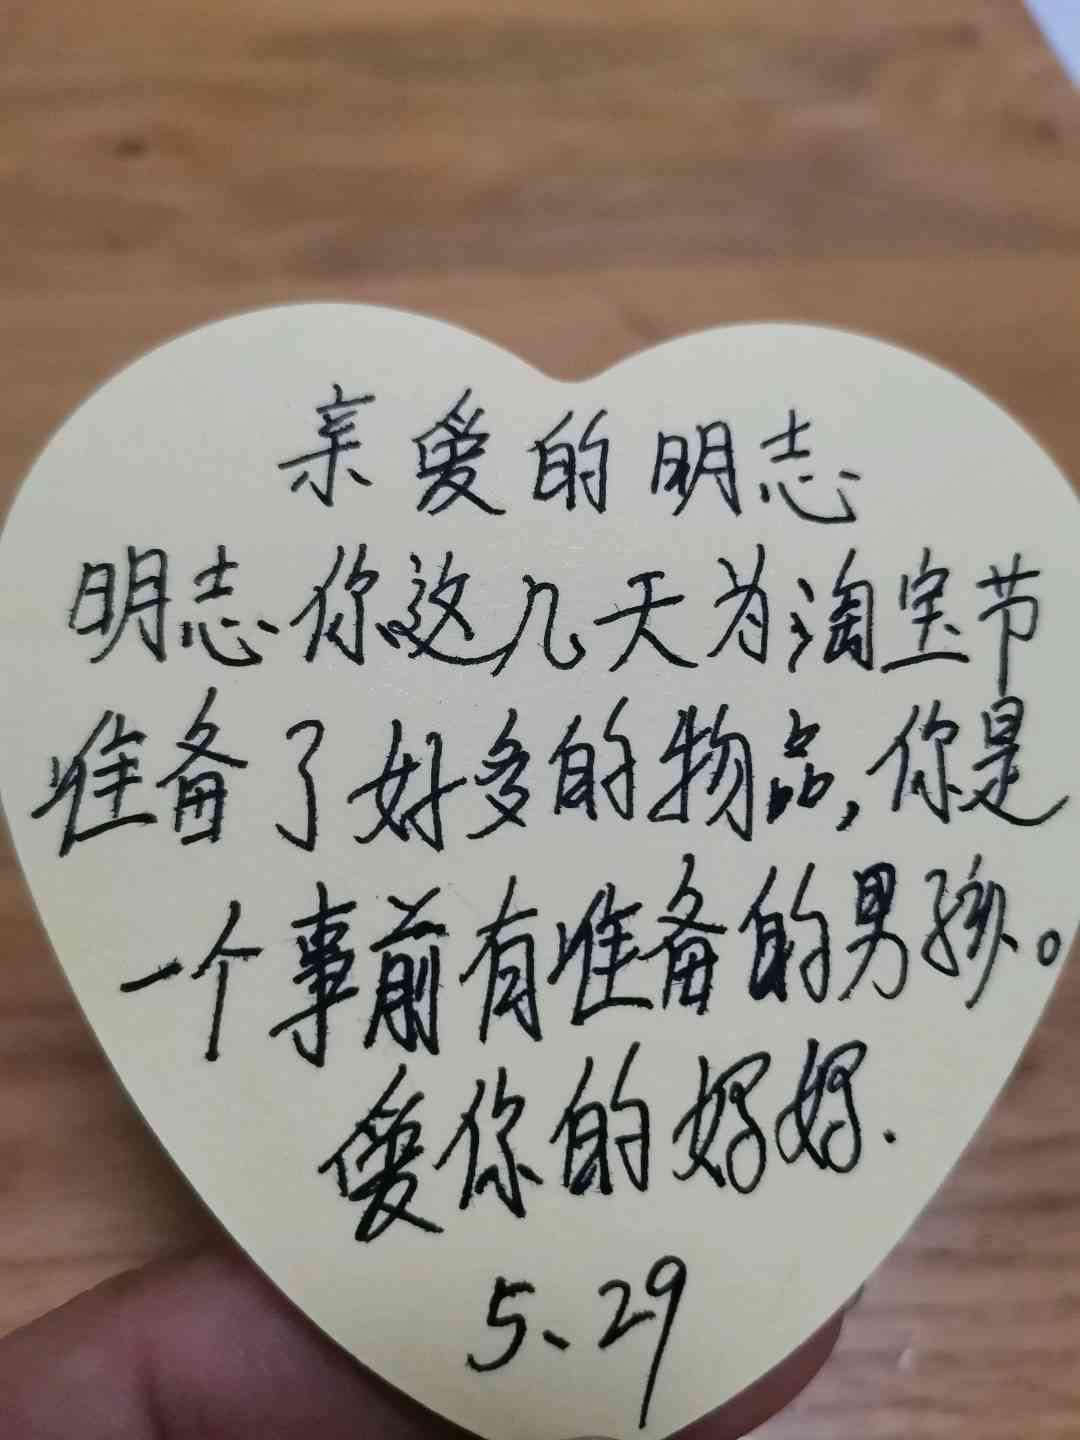 亲爱的明志
明志你这几天为淘宝节
准备了好多的物品,你是
一个事前有准备的男孩。
爱你的妈妈.
5、29